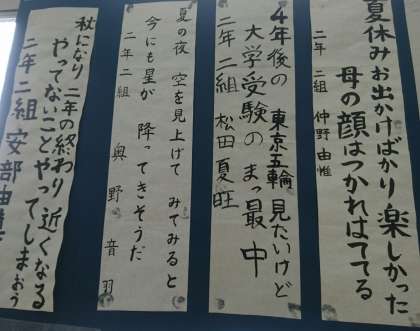 夏休みお出かけばかり楽しかった
母の顔はつかれはててる
二年 二組 仲野由惟
4年後の 東京五輪見たいけど
大学受験のまっ最中
二年二組 松田夏旺
夏の夜 空を見上げて みてみると
今にも星が 降ってきそうだ
二年二組 奥野音羽
秋になり 二年の終わり 近くなる
やってないことやってしまおう
二年二組 安部由